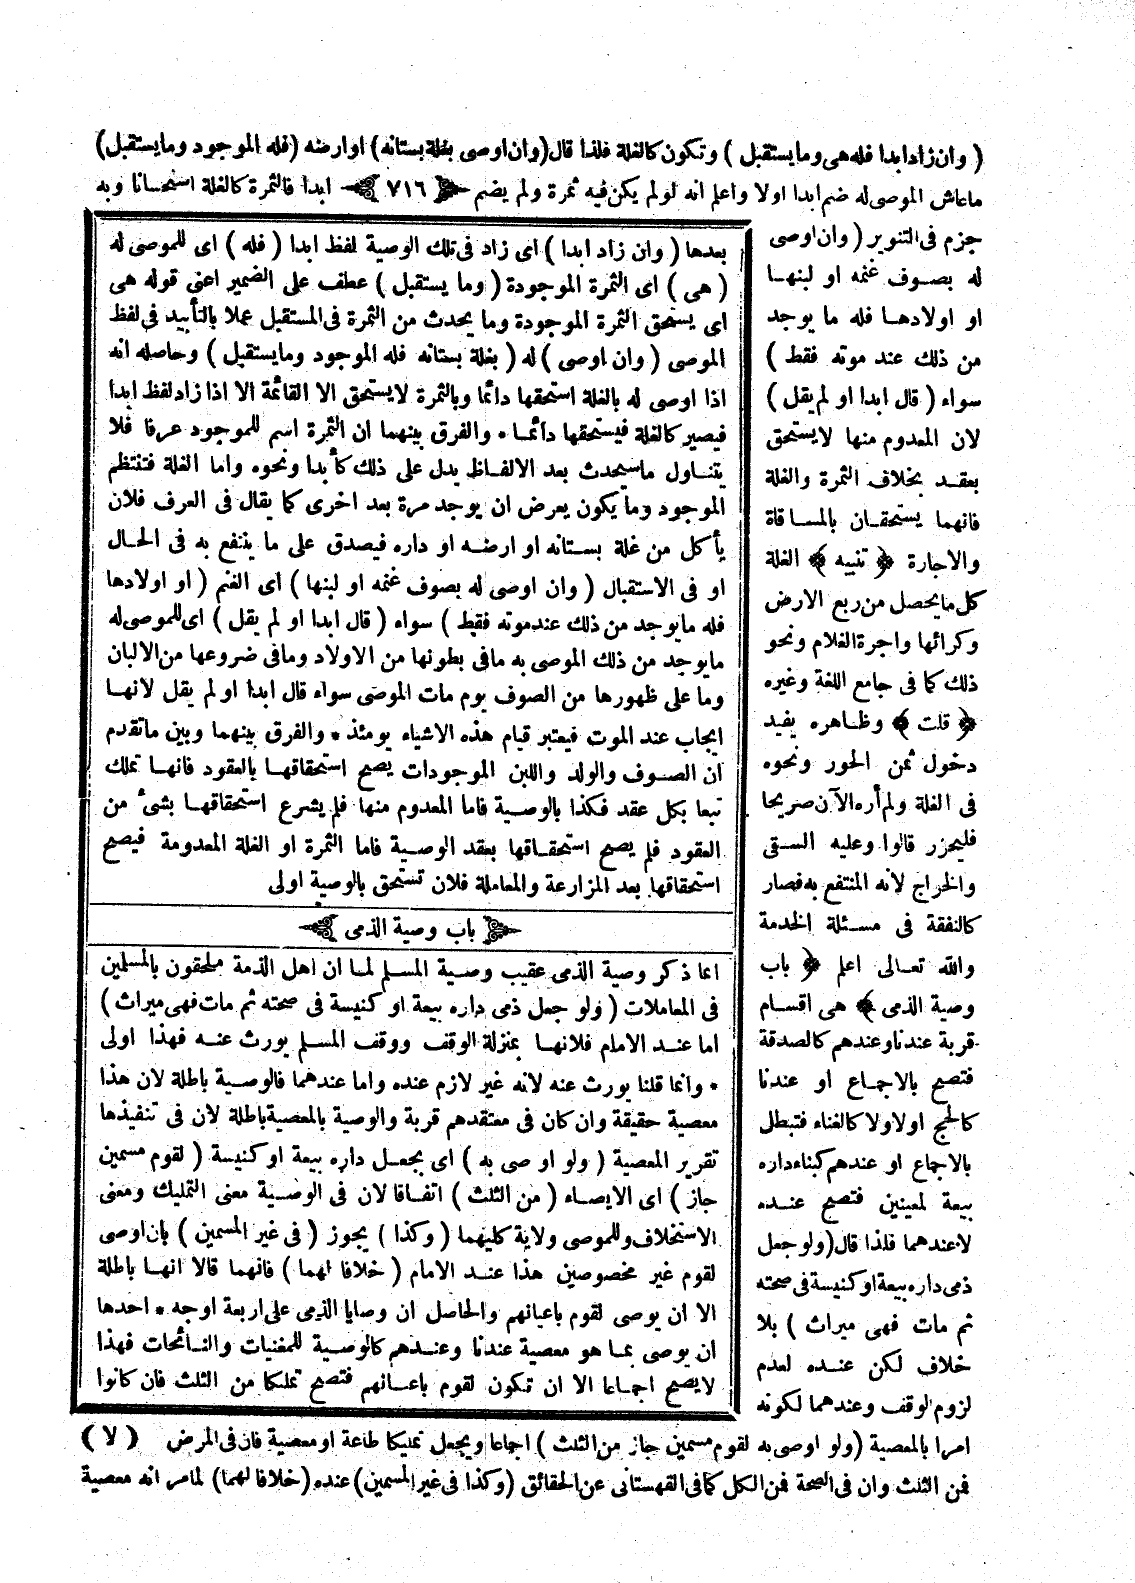 ( وان زاد ابدا فله هى وما يستقبل ) وتكون كالغلة فلذا قال (وان اوصى بغلة بستانه) او ارضه (فله الموجود وما يستقبل)
ما عاش الموصى له ضم ابدا اولا واعلم انه لو لم يكن فيه ثمرة ولم يضم ﴿ ٧١٦ ﴾ ابدا فالثمرة كالغلة استحسانا وبه
جزم فى التنوير ( وان اوصى
له بصوف غنمه او لبنها
او اولادها فله ما يوجد
من ذلك عند موته فقط )
سواء ( قال ابدا او لم يقل )
لان المعدوم منها لا يستحق
بعقد بخلاف الثمرة والغلة
فانهما يستحقان بالمساقاة
والاجارة ﴿ تنبيه ﴾ الغلة
كل ما يحصل من ريع الارض
وكرائها واجرة الغلام ونحو
ذلك كما فى جامع اللغة وغيره
﴿ قلت ﴾ وظاهره يفيد
دخول ثمن الحور ونحوه
فى الغلة ولم أره الآن صريحا
فليحرر قالوا وعليه السقى
والخراج لانه المنتفع به فصار
كالنفقة فى مسئلة الخدمة
والله تعالى اعلم ﴿ باب
وصية الذمى ﴾ هى اقسام
قربة عندنا وعندهم كالصدقة
فتصح بالاجماع او عندنا
كالحج اولا ولا كالغناء فتبطل
بالاجماع او عندهم كبناء داره
بيعة لمعينين فتصح عنده
لا عندهما فلذا قال (ولو جعل
ذمى داره بيعة او كنيسة فى صحته
ثم مات فهى ميراث ) بلا
خلاف لكن عنده لعدم
لزوم الوقف وعندهما لكونه
امرا بالمعصية (ولو اوصى به لقوم مسمين جاز من الثلث ) اجماعا ويجعل تمليكا طاعة او معصية فان فى المرض
فمن الثلث وان فى الصحة فمن الكل كما فى القهستانى عن الحقائق (وكذا فى غير المسمين) عنده (خلافا لهما) لما مر انه معصية
بعدها ( وان زاد ابدا ) اى زاد فى تلك الوصية لفظ ابدا ( فله ) اى للموصى له
( هى ) اى الثمرة الموجودة ( وما يستقبل ) عطف على الضمير اعنى قوله هى
اى يستحق الثمرة الموجودة وما يحدث من الثمرة فى المستقبل عملا بالتأبيد فى لفظ
الموصى ( وان اوصى ) له ( بغلة بستانه فله الموجود وما يستقبل ) وحاصله انه
اذا اوصى له بالغلة استحقها دائما وبالثمرة لا يستحق الا القائمة الا اذا زاد لفظ ابدا
فيصير كالغلة فيستحقها دائما • والفرق بينهما ان الثمرة اسم للموجود عرفا فلا
يتناول ما سيحدث بعد الالفاظ يدل على ذلك كأبدا ونحوه واما الغلة فتنتظم
الموجود وما يكون يعرض ان يوجد مرة بعد اخرى كما يقال فى العرف فلان
يأكل من غلة بستانه او ارضه او داره فيصدق على ما ينتفع به فى الحال
او فى الاستقبال ( وان اوصى له بصوف غنمه او لبنها ) اى الغنم ( او اولادها
فله ما يوجد من ذلك عند موته فقط ) سواء ( قال ابدا او لم يقل ) اى للموصى له
ما يوجد من ذلك الموصى به مافى بطونها من الاولاد ومافى ضروعها من الالبان
وما على ظهورها من الصوف يوم مات الموصى سواء قال ابدا او لم يقل لانها
ايجاب عند الموت فيعتبر قيام هذه الاشياء يومئذ • والفرق بينهما وبين ما تقدم
ان الصوف والولد واللبن الموجودات يصح استحقاقها بالعقود فانها تملك
تبعا بكل عقد فكذا بالوصية فاما المعدوم منها فلم يشرع استحقاقها بشئ من
العقود فلم يصح استحقاقها بعقد الوصية فاما الثمرة او الغلة المعدومة فيصح
استحقاقها بعد المزارعة والمعاملة فلان تستحق بالوصية اولى
﴿ باب وصية الذمى ﴾
انما ذكر وصية الذمى عقيب وصية المسلم لما ان اهل الذمة ملحقون بالمسلمين
فى المعاملات ( ولو جعل ذمى داره بيعة او كنيسة فى صحته ثم مات فهى ميراث )
اما عند الامام فلانها بمنزلة الوقف ووقف المسلم يورث عنه فهذا اولى
• وانما قلنا يورث عنه لانه غير لازم عنده واما عندهما فالوصية باطلة لان هذا
معصية حقيقة وان كان فى معتقدهم قربة والوصية بالمعصية باطلة لان فى تنفيذها
تقرير المعصية ( ولو اوصى به ) اى بجعل داره بيعة او كنيسة ( لقوم مسمين
جاز ) اى الايصاء ( من الثلث ) اتفاقا لان فى الوصية معنى التمليك ومعنى
الاستخلاف وللموصى ولاية كليهما ( وكذا ) يجوز ( فى غير المسمين ) بان اوصى
لقوم غير مخصوصين هذا عند الامام ( خلافا لهما ) فانهما قالا انها باطلة
الا ان يوصى لقوم باعيانهم والحاصل ان وصايا الذمى على اربعة اوجه • احدها
ان يوصى بما هو معصية عندنا وعندهم كالوصية للمغنيات والنائحات فهذا
لا يصح اجماعا الا ان تكون لقوم باعيانهم فتصح تملكا من الثلث فان كانوا
( لا )